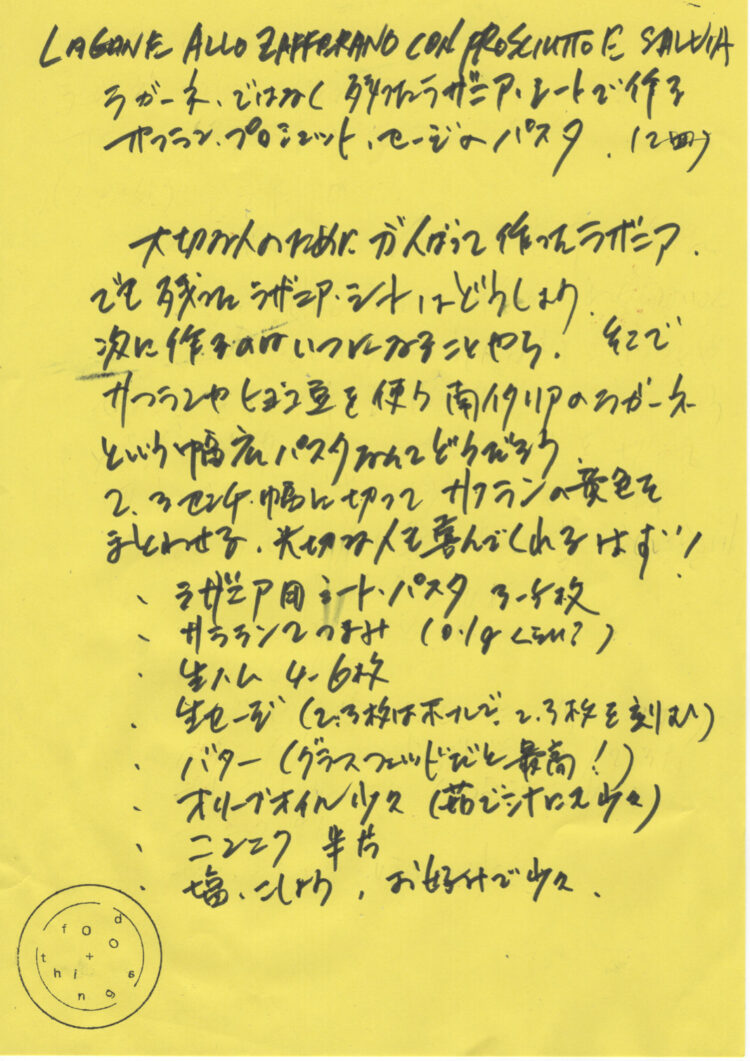 LAGANE ALLO ZAFFERANO CON PROSCIUTTO E SALVIA
ラガーネ、ではなく 残ったラザニア・シートで作る
サフラン、プロシュット、セージのパスタ、(2皿)
大切な人のために がんばって作ったラザニア、
でも 残った ラザニア・シートはどうしよう、
次に作るのはいつになることやら、そこで
サフランやヒヨコ豆を使う 南イタリアのラガーネ
という幅広パスタなんてどうだろう、
2、3センチ幅に切って サフランの黄色を
まとわせる、大切な人も喜んでくれるはず!
、ラザニア用シート・パスタ 3-5枚
、サフラン2つまみ (0.1gくらい?)
、生ハム 4-6枚
、生セージ (2、3枚はホールで、2、3枚を刻む)
、バター (グラスフェッドだと最高!)
、オリーブオイル少々 (茹でジルに又少々)
、ニンニク 半片
、塩、こしょう、お好みで少々、
food + things